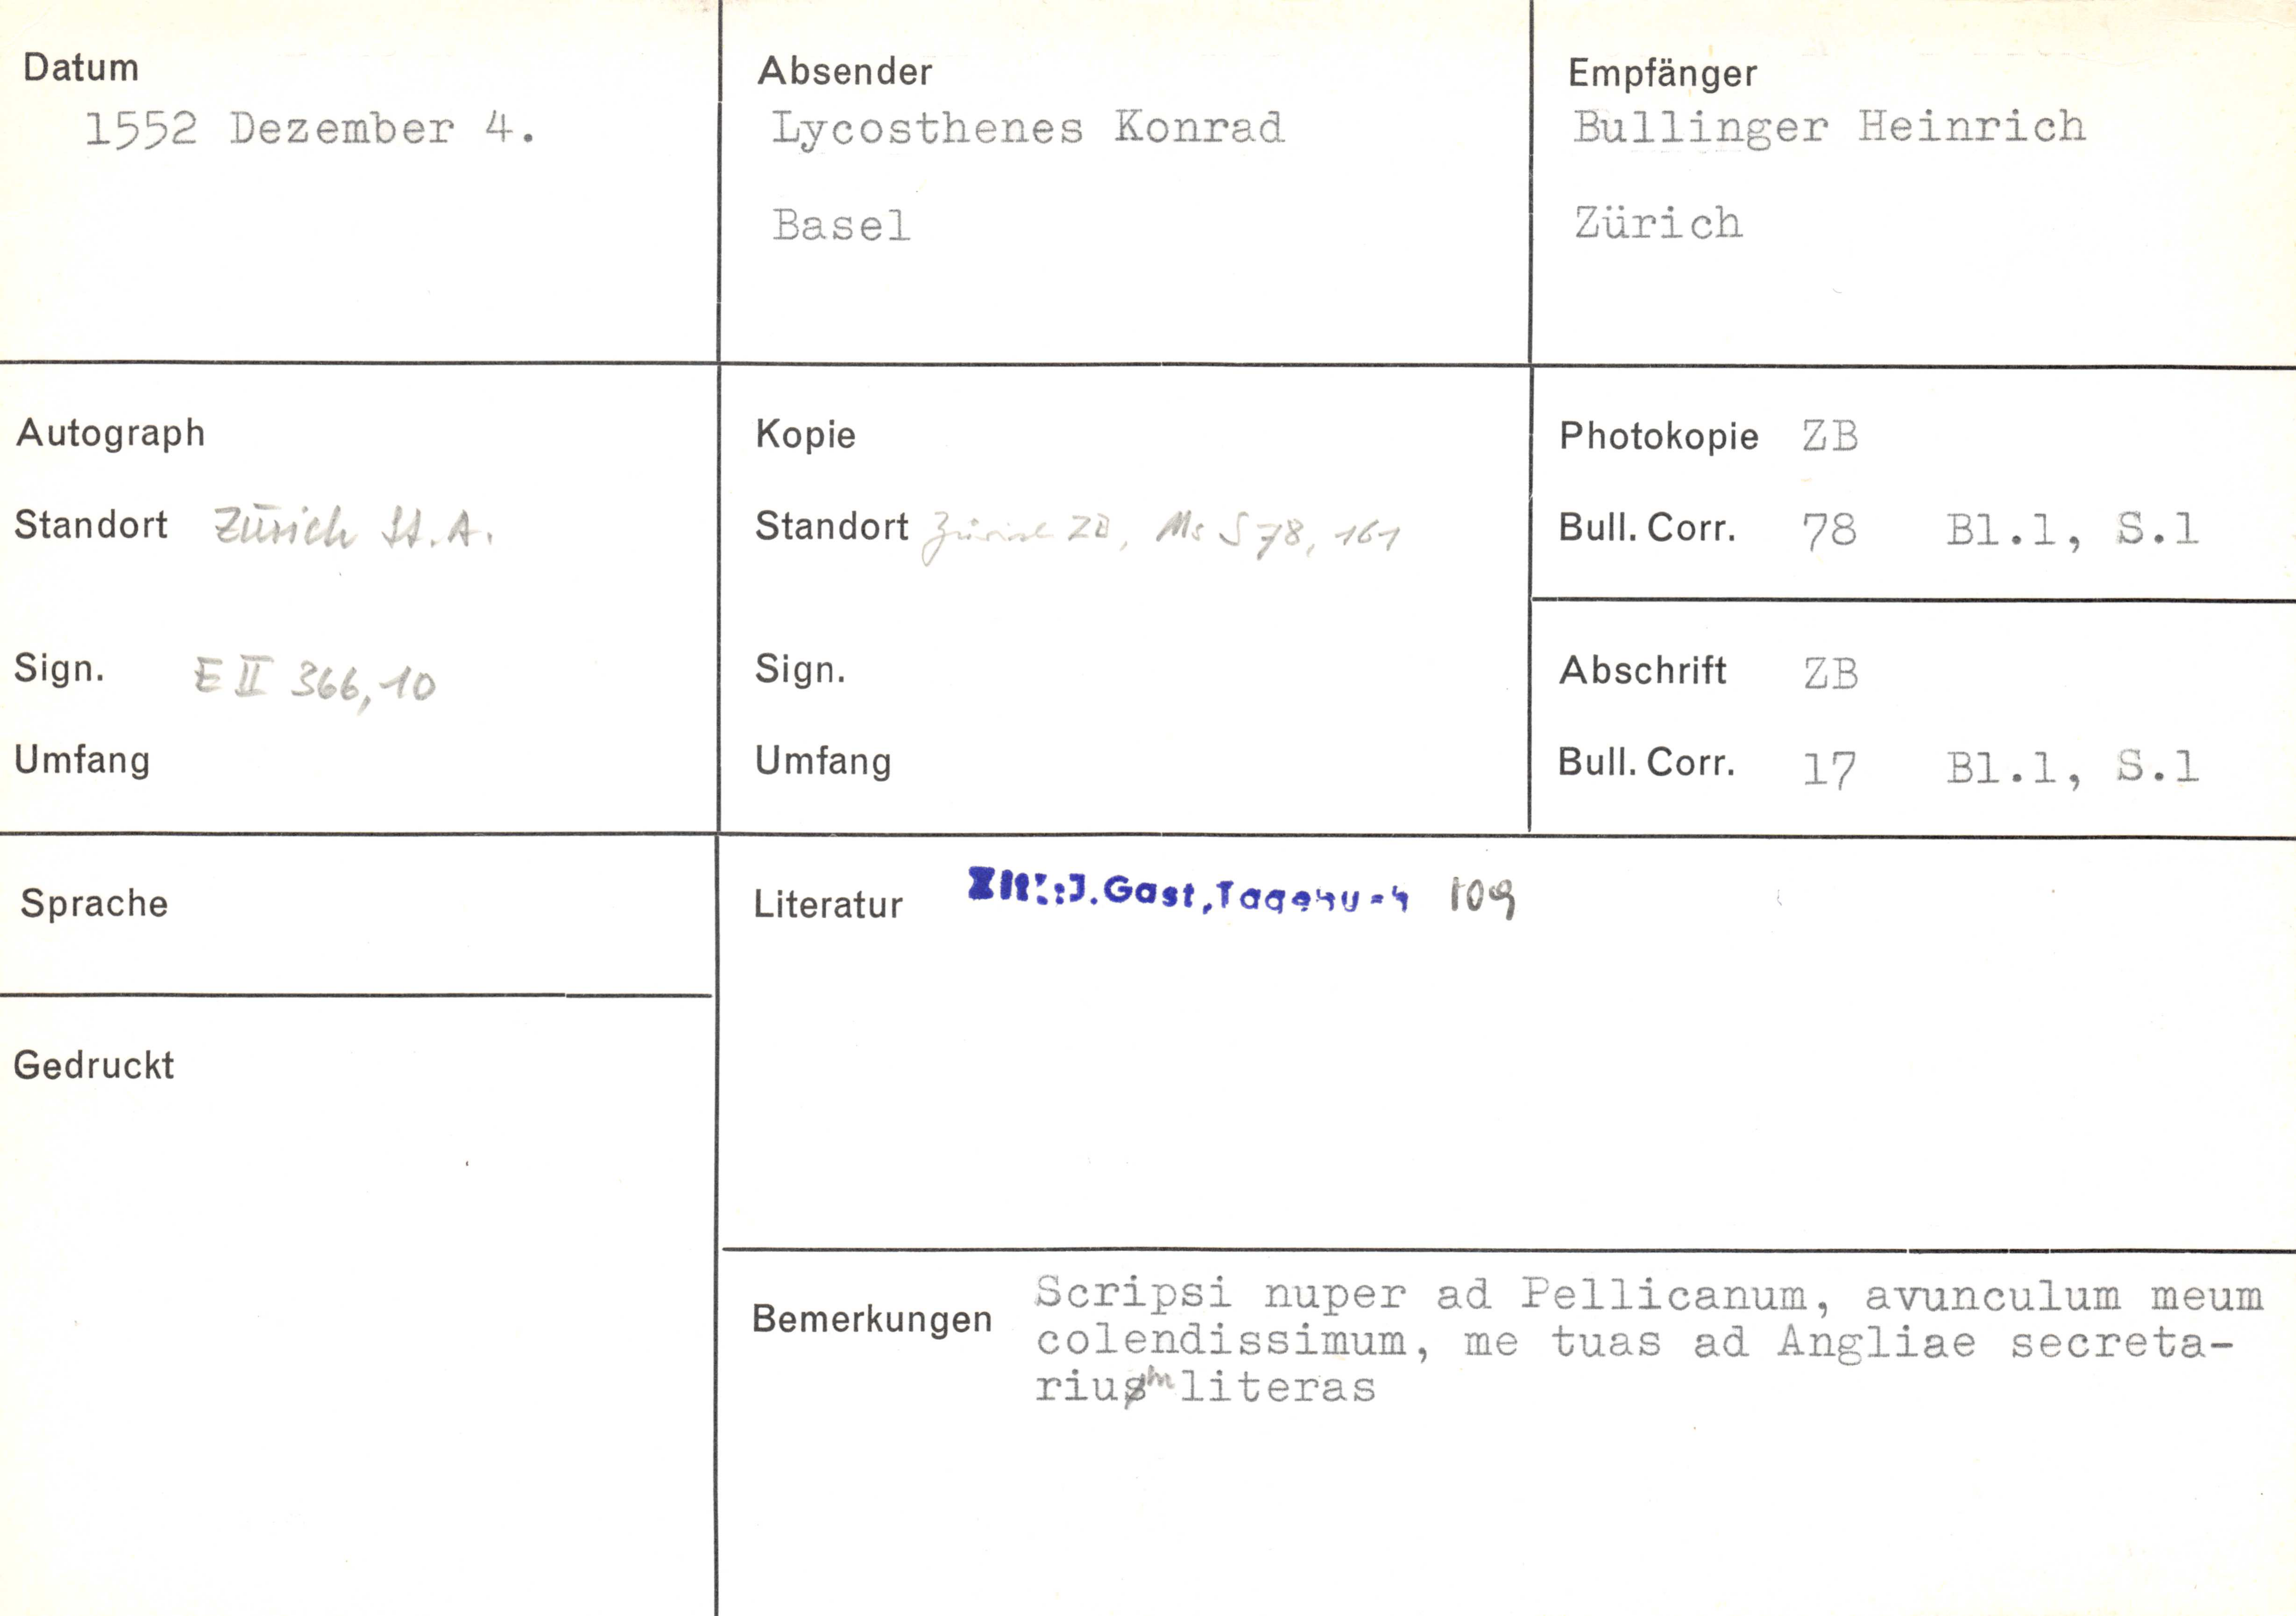 Datum
1552 Dezember 4.
Absender
Lycosthenes Konrad
Basel
Empfänger
Bullinger Heinrich
Zürich
Autograph
Standort Zürich St.A.
Sign. E II 366,10
Umfang
Kopie
Standort Zürich ZB, Ms S 78, 161
Sign.
Umfang
Photokopie ZB
Bull. Corr. 78 Bl.1, S.1
Abschrift ZB
Bull. Corr. 17 Bl.1, S.1
Sprache
Gedruckt
Literatur J. Gast, Tagebuch 109
Bemerkungen Scripsi nuper ad Pellicanum, avunculum meum
colendissimum, me tuas ad Angliae secreta-
rium literas